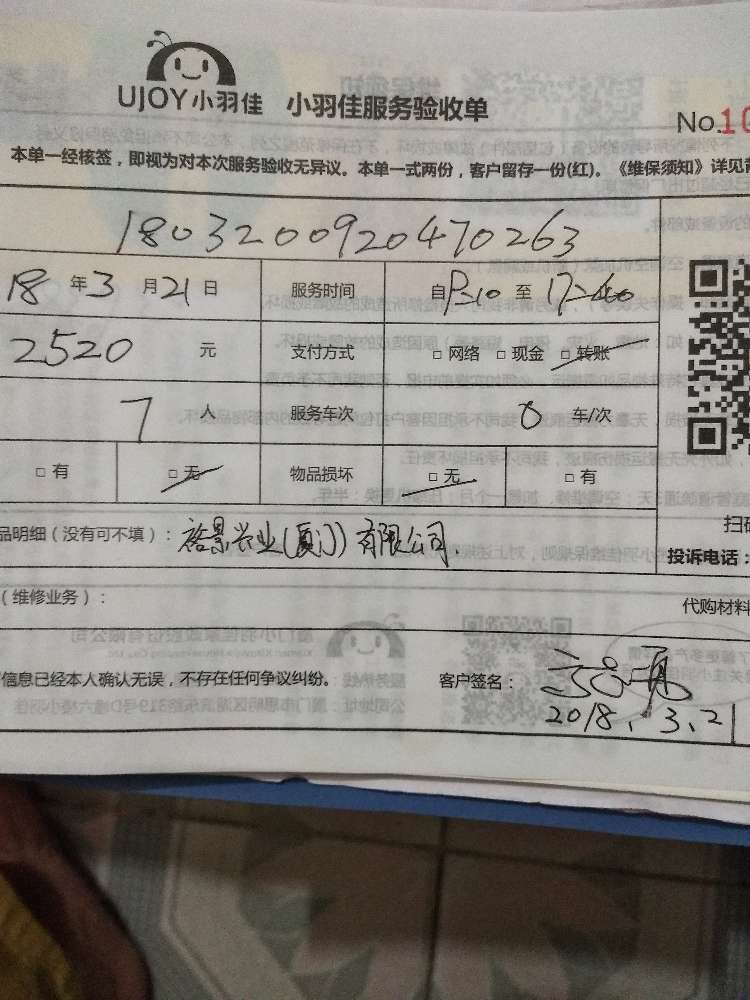 UJOY小羽佳 小羽佳服务验收单
No.10
本单一经核签，即视为对本次服务验收无异议。本单一式两份，客户留存一份(红)。《维保须知》详见背
1803200920470263
18 年 3 月 21 日 服务时间 自 至 17:40
2520 元 支付方式 □ 网络 □ 现金 □ 转账
7 人 服务车次 0 车/次
□ 有 □ 无 物品损坏 □ 无 □ 有
品明细（没有可不填）： 裕景兴业(厦门)有限公司.
扫码
投诉电话：
（维修业务）：
代购材料
信息已经本人确认无误，不存在任何争议纠纷。 客户签名：
2018.3.21